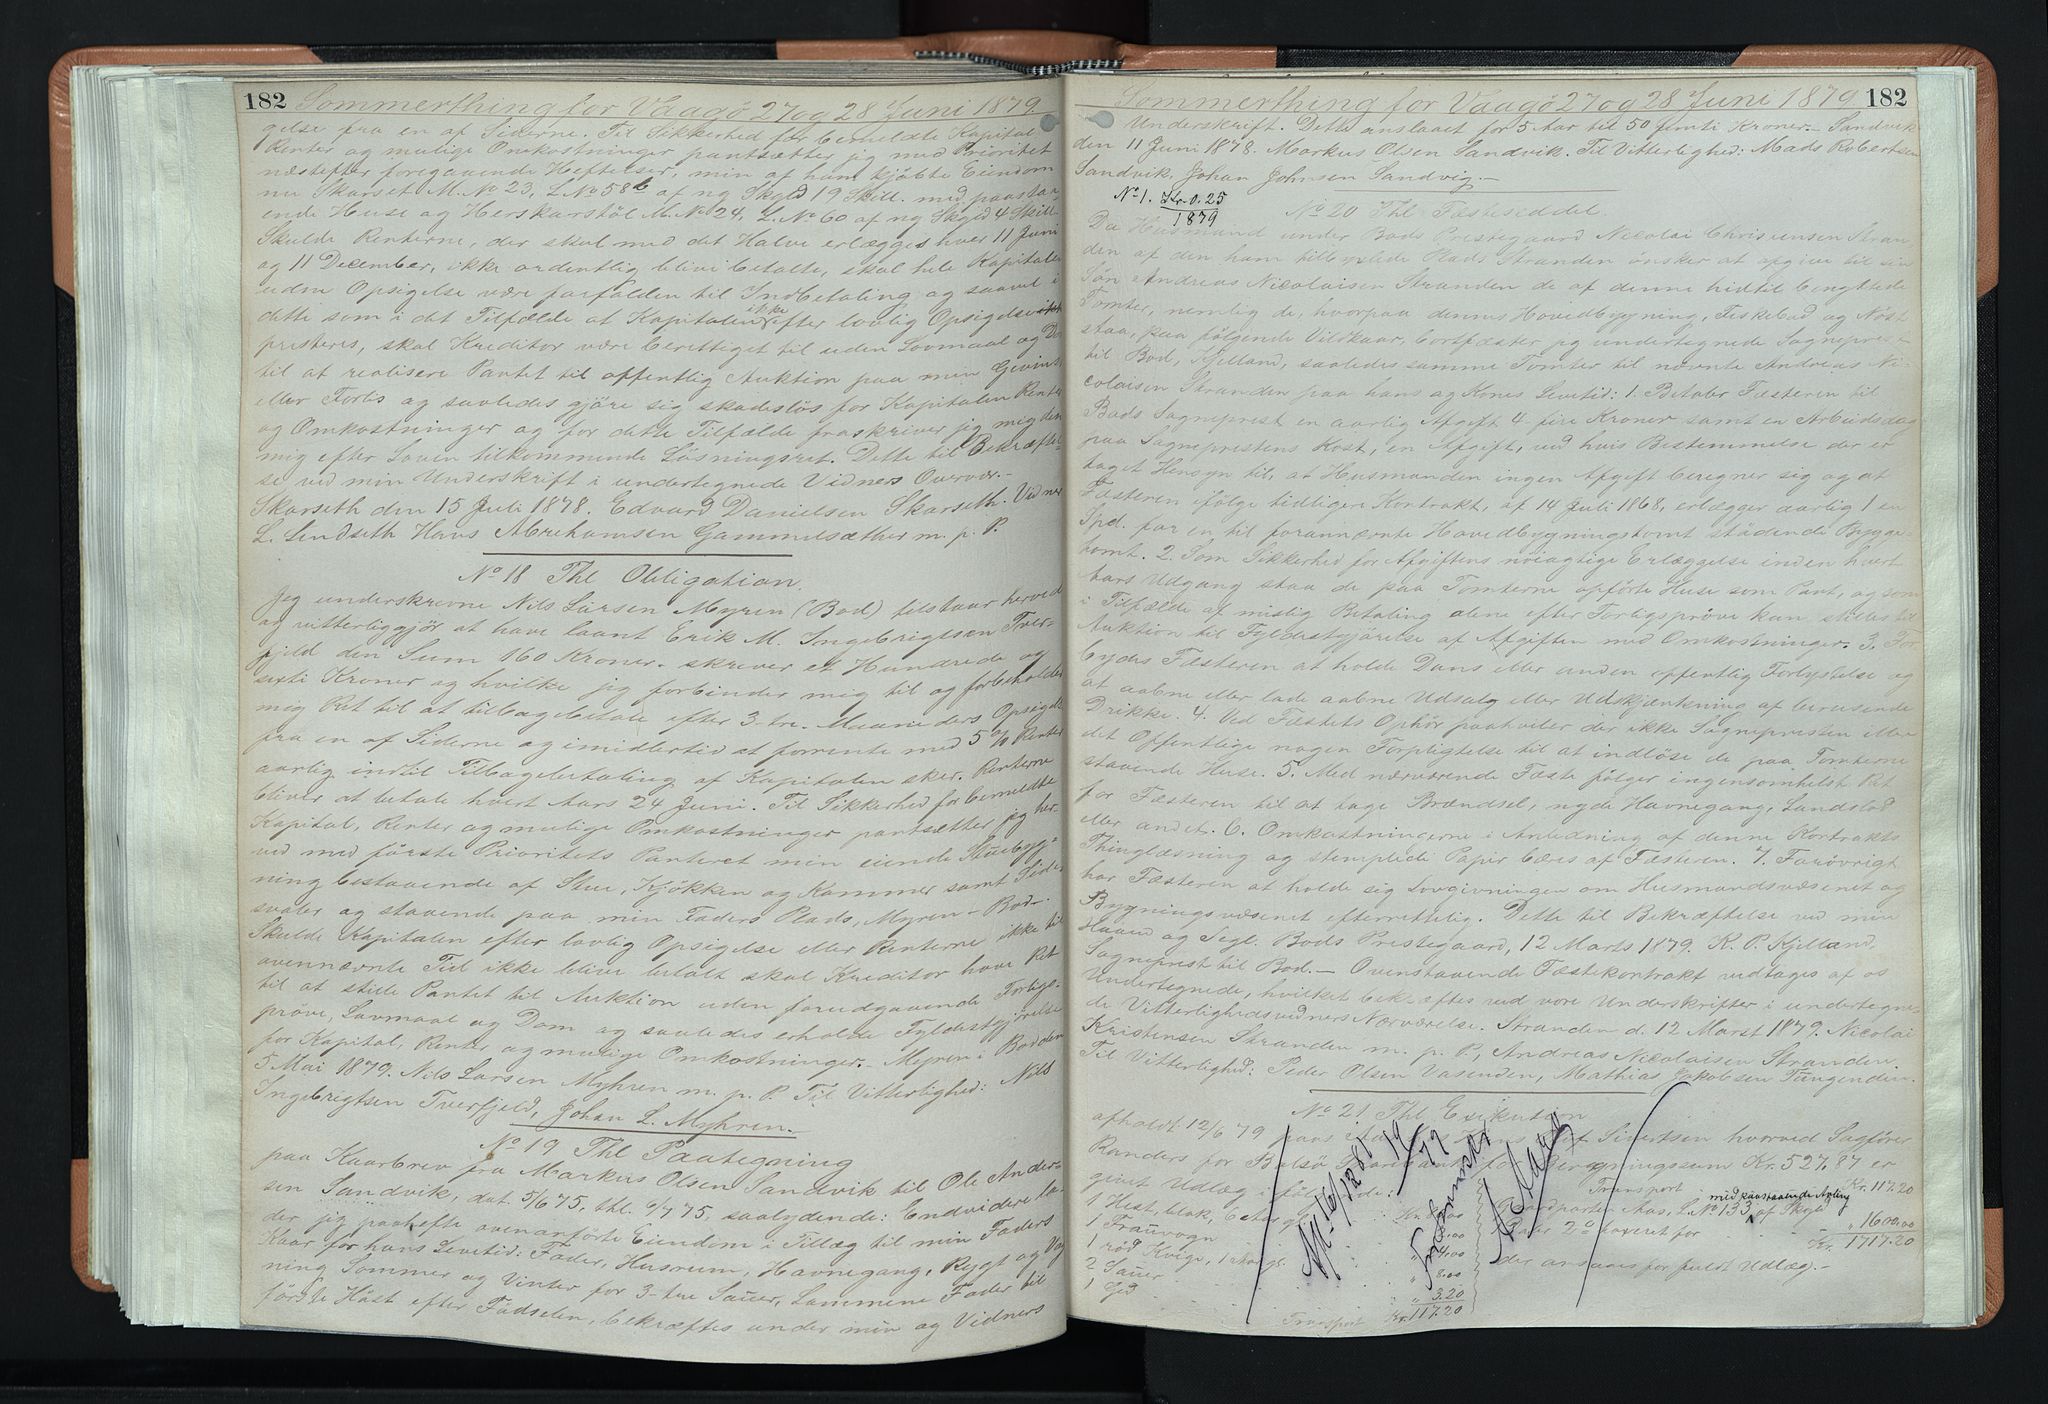 182 Sommerthing for Vaagö 27 og 28 Juni 1879
gelse fra en af Siderne. Til Sikkerhed for bemeldte Kapital
Renter og mulige Omkostninger pantsætter jeg med Prioritet
næstefter foregaaende Heftelser, min af ham kjöbte Eiendom
nu Skarset M. No 23, L No 58b af ny Skyld 19 Skill. med paastaa-
ende Huse og Herskarstöl M. No 24, L. No 60 af ny Skyld 4 Skill.
Skulde Renterne, der skal med det Halve erlægges hver 11 Juni
og 11 December, ikke ordentlig blive betalte, skal hele Kapitalen
uden Opsigelse være forfalden til Indbetaling og saavel i
dette som i det Tilfælde at Kapitalen ikke efter lovlig Opsigelse
presteres, skal Kreditor være berettiget til uden Lovmaal og Dom
til at realisere Pantet til offentlig Auktion paa min Gevinst
eller Forlis og saaledes gjöre sig skadeslös for Kapitalen Renter
og Omkostninger og for dette Tilfælde fraskriver jeg mig den
mig efter Loven tilkommende Lösningsret. Dette til Bekræftel-
se ved min Underskrift i undertegnede Vidners Overvær.-
Skarseth den 15 Juli 1878. Edvard Danielsen Skarseth. Vidner
L. Lindseth Hans Abrehamsen Gammelsæther m. p. P.
No 18 Thl Obligation.
Jeg underskrevne Nils Larsen Myren (Bod) tilstaar herved
og vitterliggjör at have laant Erik M. Ingebrigtsen Tver-
fjeld den Sum 160 Kroner - skrever et Hundrede og
sexti Kroner og hvilke jeg forbinder mig til og forbeholder
mig Ret til at tilbagebetale efter 3-tre - Maaneders Opsigelse
fra en af Siderne og imidlertid at forrente med 5 % Renter
aarlig indtil Tilbagebetaling af Kapitalen sker. Renterne
bliver at betale hvert Aars 24 Juni. Til Sikkerhed for bemeldte
Kapital, Renter og mulige Omkostninger pantsætter jeg her-
ved med förste Prioritets Panteret min eiende Stuebyg-
ning bestaaende af Stue, Kjökken og Kammer samt Side-
svaler og staaende paa min Faders Plads, Myren - Bod -.
Skulde Kapitalen efter lovlig Opsigelse eller Renterne ikke til
ovennævnte Tid ikke blive betalt skal Kreditor have Ret
til at stille Pantet til Auktion uden forudgaaende Forligs-
pröve, Lovmaal og Dom og saaledes erholde Fyldestgjörelse
for Kapital, Renter og mulige Omkostninger. - Myren i Bod den
5 Mai 1879. Nils Larsen Myhren m. p. P. Til Vitterlighed: Nils
Ingebregtsen Tverfjeld, Johan L. Myhren.
No 19 Thl Paategning
paa Kaarbrev fra Markus Olsen Sandvik til Ole Ander-
sen Sandvik, dat. 5/6 75, thl. 6/7 75, saalydende: Endvidere la-
der jeg paahefte ovenanförte Eiendom i Tillæg til min Faders
Kaar for hans Levetid: Fader, Husrum, Havnegang, Rygt og Vog
ning Sommer og Vinter for 3-tre Sauer, Lammene Foder til
förste Höst efter Födselen, bekræftes under min og Vidners
Sommerthing for Vaagö 27 og 28 Juni 1879 182
Underskrift. Dette anslaaet for 5 Aar til 50 femti Kroner. - Sandvik
den 11 Juni 1878. Markus Olsen Sandvik. Til Vitterlighed: Mads Robertsen
Sandvik, Johan Johnsen Sandvig. -
No 1. Kr. 0.25
1879
No 20 Thl Fæsteseddel.
Da Husmand under Bods Prestegaard Nicolai Christensen Stran
den af den ham tilbyxlede Plads Stranden önsker at afgive til sin
Sön Andreas Nicolaisen Stranden de af denne hidtil benyttede
Tomter, nemlig de, hvorpaa dennes Hovedbygning, Fiskebod og Nöst
staa, paa fölgende Vilkaar, bortfæster jeg undertegnede Sogneprest
til Bod, Kjelland, saaledes samme Tomter til nævnte Andreas Ni-
colaisen Stranden paa hans og Kones Levetid: 1. Betaler Fæsteren til
Bods Sogneprest en aarlig Afgift 4 fire Kroner samt en Arbeidsdag
paa Sogneprestens Kost, en Afgift, ved hvis Bestemmelse der er
taget Hensyn til, at Husmanden ingen Afgift beregner sig og at
Fæsteren ifölge tidligere Kontrakt, af 14 Juli 1868, erlægger aarlig 1 en
Spd. for en til forannævnte Hovedbygningstomt stödende Bygge-
tomt. 2. Som Sikkerhed for Afgiftens nöiagtige Erlæggelse inden hvert
Aars Udgang staa de paa Tomterne opförte Huse som Pant, og som
i Tilfælde af mislig Betaling alene efter Forligspröve kan stilles til
Auktion til Fyldestgjörelse af Afgiften med Omkostninger. 3. For-
bydes Fæsteren at holde Dans eller anden offentlig Forlystelse og
at aabne eller lade aabne Udsalg eller Udskjenkning af berusende
Drikke. 4. Ved Fæstets Ophör paahviler der ikke Sognepresten eller
det Offentlige nogen Forpligtelse til at indlöse de paa Tomterne
staaende Huse. 5. Med nærværende Fæste fölger ingensomhelst Ret
for Fæsteren til at tage Brændsel, nyde Havnegang, Landslod
eller andet. 6. Omkostningerne i Anledning af denne Kontrakts
Thinglæsning og stemplede Papir bæres af Fæsteren. 7. Forövrigt
har Fæsteren at holde sig Lovgivningen om Husmandsvæsenet og
Bygningsvæsenet efterrettelig. Dette til Bekræftelse ved min
Haand og Segl. Bods Prestegaard, 12 Marts 1879. K. P. Kjelland,
Sogneprest til Bod. - Ovenstaaende Fæstekontrakt vedtages af os
Undertegnede, hvilket bekræftes ved vore Underskrifter i undertegne-
de Vitterlighedsvidners Nærværelse. Stranden d. 12 Marst 1879. Nicolai
Kristensen Stranden m. p. P., Andreas Nicolaisen Stranden.
Til Vitterlighed: Peder Olsen Vasenden, Mathias Jakobsen Tungenden.
No 21 Thl Exekution
afholdt 12/6 79 hos Sivertsen hvorved Sagförer
Randers for Bolsö Sparebank for Beregningssum Kr. 527.87 er
givet Udlæg i
1 Hest, blak,
1 Trauvogn
1 röd Kvige, 1
2 Sauer " 8.00
1 Gjed " 3.20
Transport Kr. 117.20
Transport Kr. 117.20
med paastaaende Avling
Gaardparten Aas, L. No 133 af Skyld
" 1600.00
Kr. 1717.20
der ansaaes for fuldt Udlæg. -